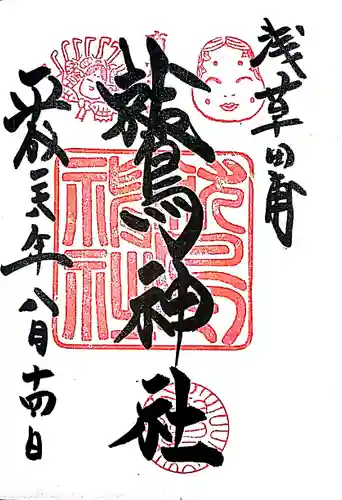 浅草田甫
鷲神社
平成二十六年八月十四日